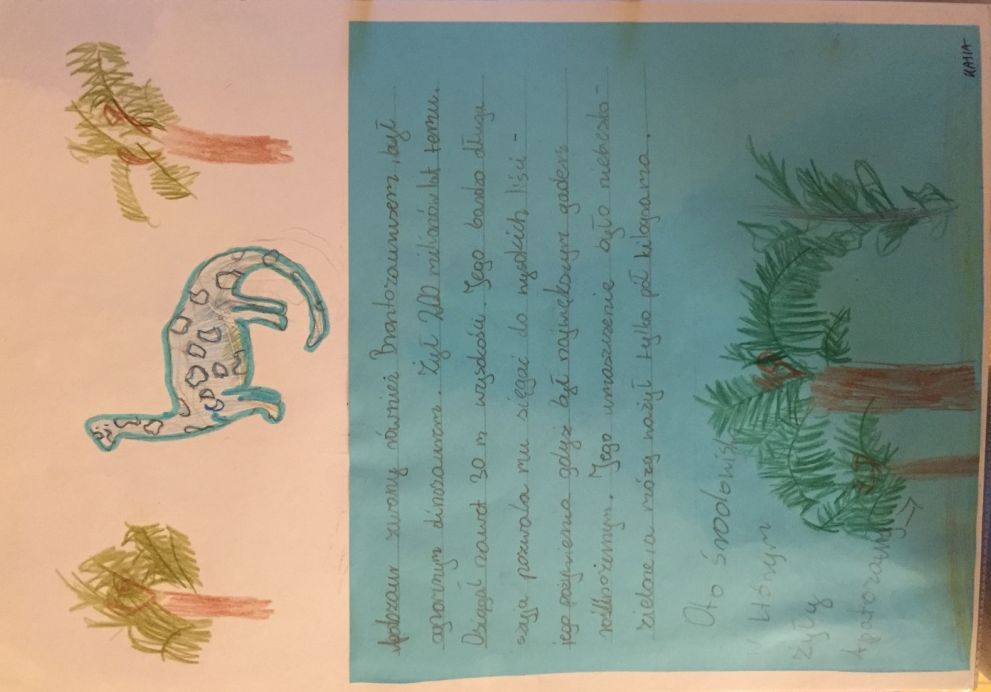 Apatozaur zwany również Brontozaurusem, był
ogromnym dinozaurem. Żył 200 milionów lat temu.
Osiągał nawet 30 m wysokości. Jego bardzo długa
szyja pozwalała mu sięgać do wysokich liści -
jego pożywienia gdyż był największym gadem
roślinożernym. Jego umaszczenie było niebiesko-
zielone, a mózg ważył tylko pół kilograma.
Oto środowisko
w którym
żyły
Apatozaury
KASIA